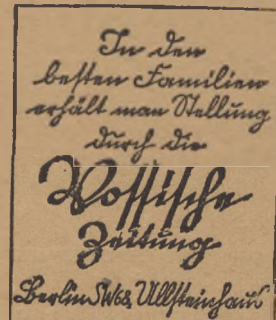 In den
besten Familien
erhält man Stellung
durch die
Vossische
Zeitung
Berlin SW68, Ullsteinhaus